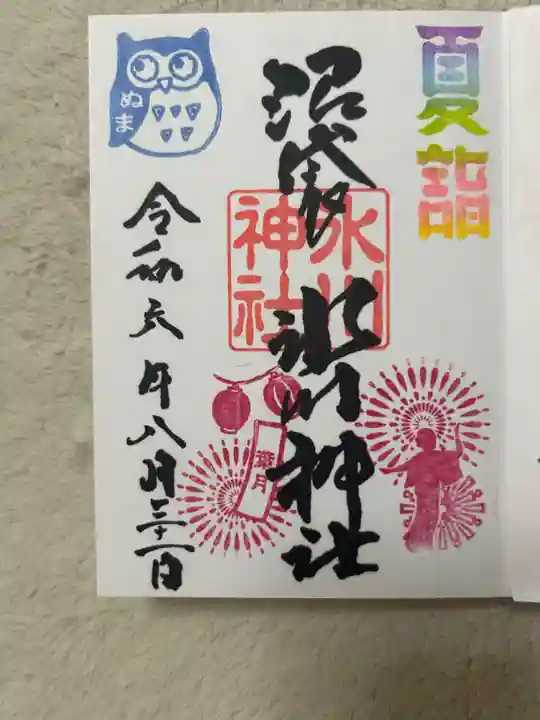 夏詣
沼袋 氷川神社
氷川
神社
葉月
ぬま
令和六年八月三十一日